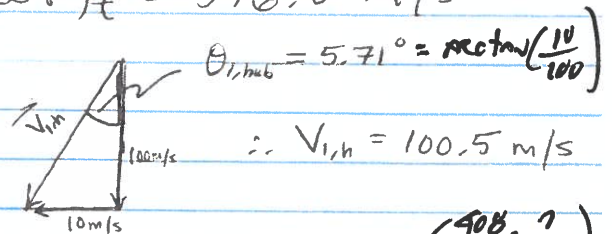 θ₁,hub = 5.71° = arctan(10/100)
V₁,h
100m/s
∴ V₁,h = 100.5 m/s
10m/s
(408. ?)